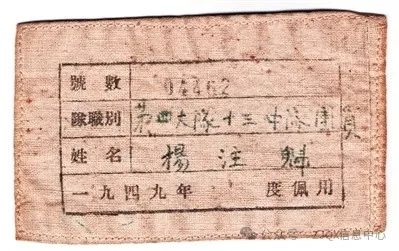 號數 04462
隊職別 第四大隊十三中隊團員
姓名 楊注魁
一九四九年 度佩用
公众号
信息中心